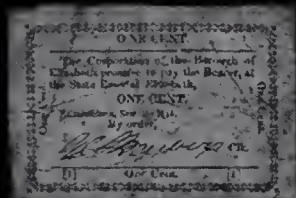 ONE CENT.
The Corporation of the Borough of
Elizabeth promise to pay the Bearer, at
the State Bank at Elizabeth,
ONE CENT.
By order,
Clk.
[1] One Cent. [1]
One Cent.
One Cent.